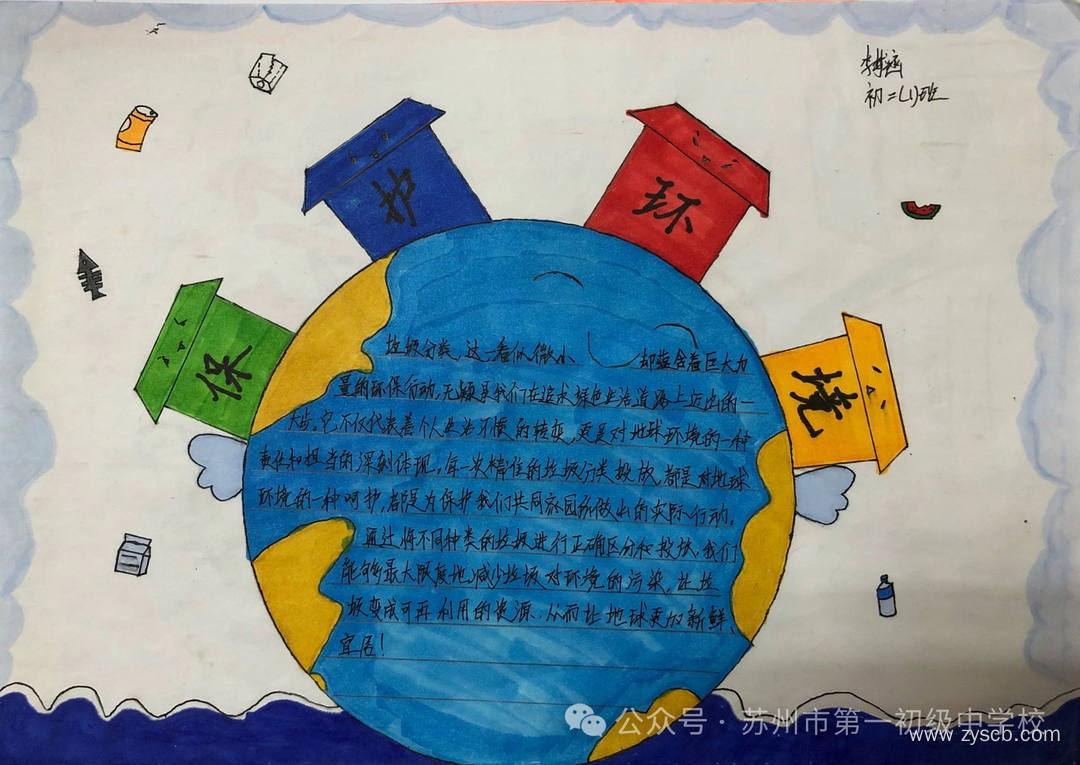 李
初二(1)班
保
护
环
境
垃圾分类,这一看似微小 却蕴含着巨大力
量的环保行动,无疑是我们在追求绿色生活道路上迈出的一
大步。它不仅代表着个人生活习惯的转变,更是对地球环境的一种
责任和担当的深刻体现。每一次精准的垃圾分类投放,都是对地球
环境的一种呵护,都是为保护我们共同家园所做出的实际行动。
通过将不同种类的垃圾进行正确区分和投放,我们
能够最大限度地减少垃圾对环境的污染,让垃
圾变成可再利用的资源,从而让地球更加新鲜、
宜居!
公众号·苏州市第一初级中学校
www.zyscb.com